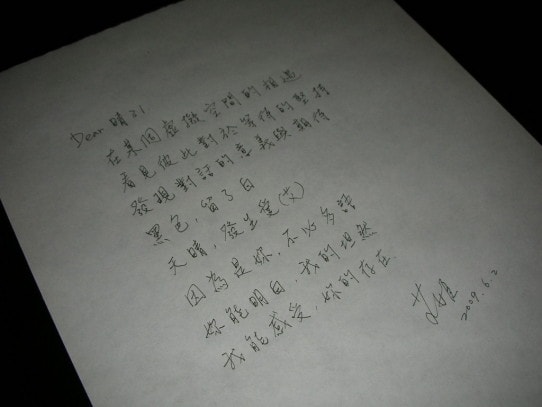 Dear 晴21
在某個虛擬空間的相遇
看見彼此對於寫情的堅持
發現對話的意義與期待
黑色，留了白
天晴，發生愛(艾)
因為是妳，不必多話
妳能明白，我的坦然
我能感受，妳的存在
2009.6.2